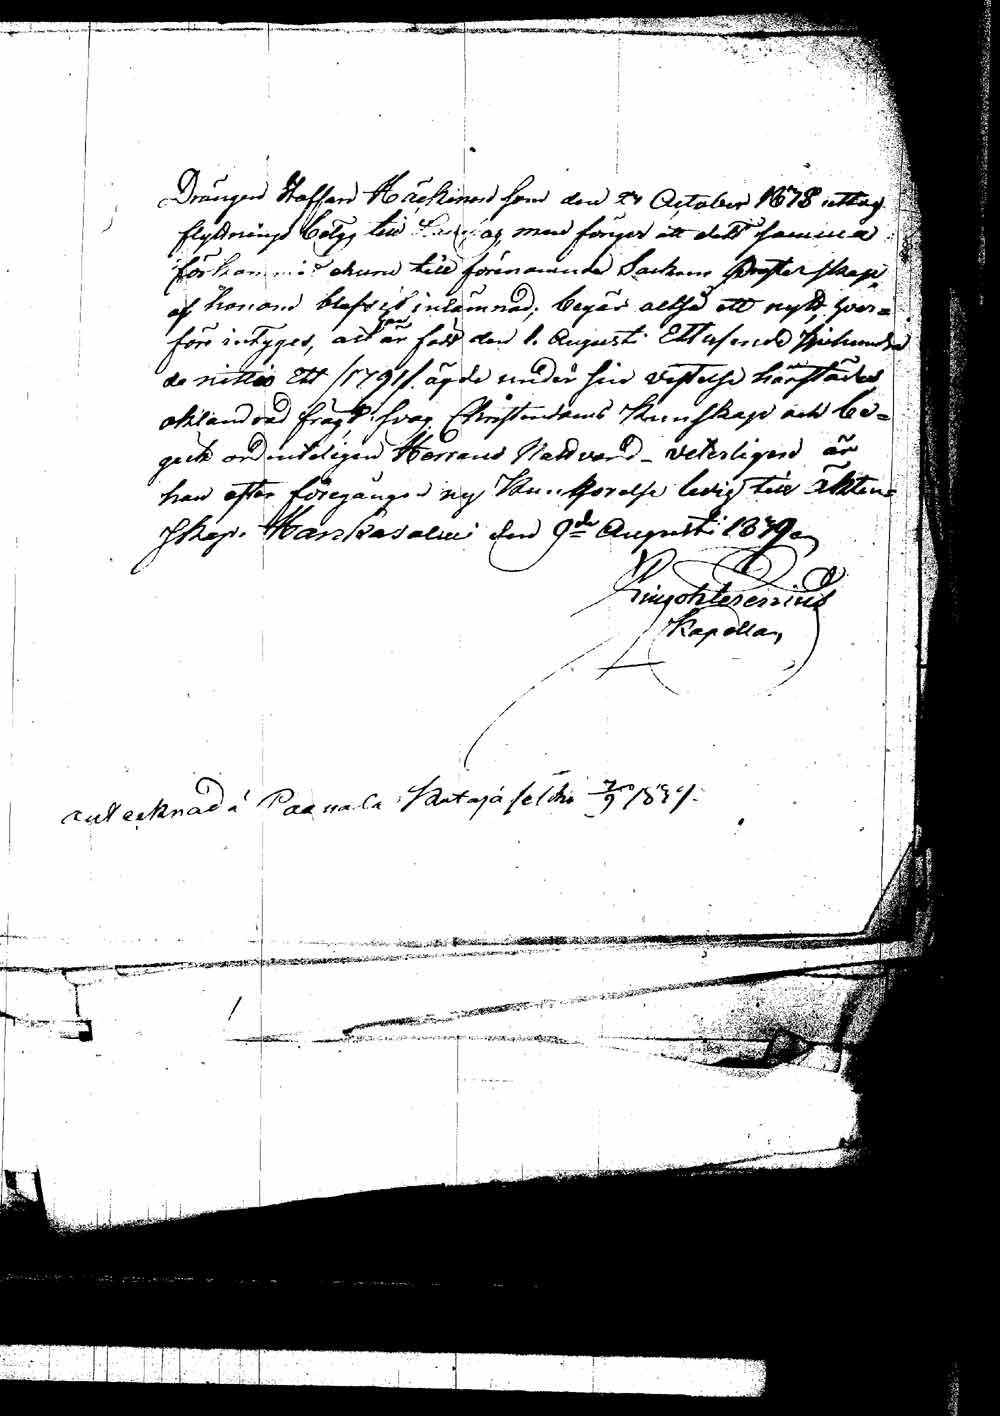 Drängen Staffan Häckinen som den 27 October 1838 uttog
flyttnings betyg till men föreger att dett samma
förkommit ehuru till förenämnde Sockens Presterskap
af honom blefvit inlämnad, begär altså ett nytt, hvar=
före intyges, att han är född den 1. Augusti Ettusende Sjuhundra
de nittio Ett /1791/. ägde under sin vistelse härstädes
oklandrad frägd, svag Christendoms Kunskap och be=
gick ordenteligen Herrans Nattvard - veterligen är
han efter föregången ny Kunkörelse ledig till Äkten=
skap. Hankasalmi den 9de Augusti 1839
Kapellan
antecknad å Paanala Katajaselkä 7/9 1839.